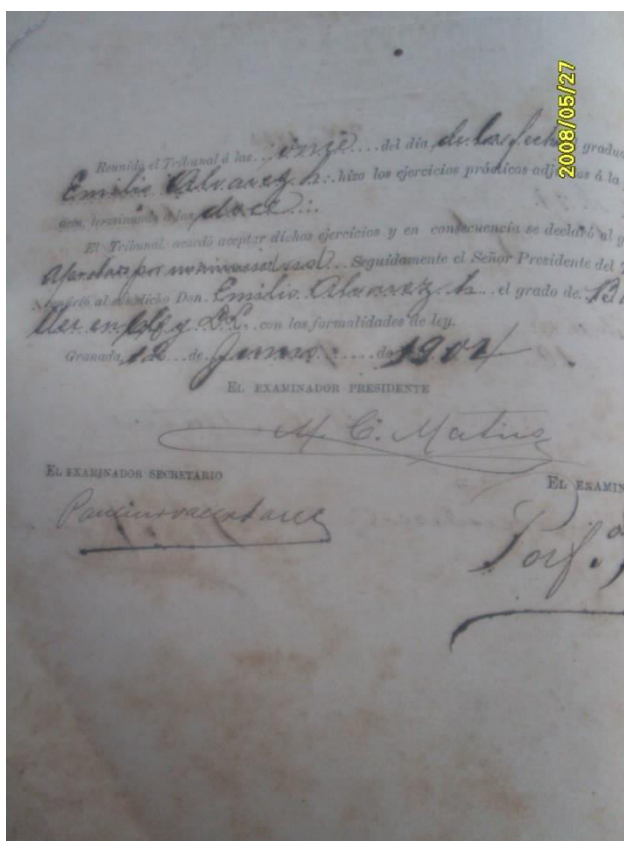 Reunido el Tribunal á las onze del día de la fecha gradu
Emilio Alvarez h. hizo los ejercicios prácticos adj á la
terminando á las doce
El Tribunal acordó aceptar dichos ejercicios y en consecuencia se declaró al g
Aprobado por Seguidamente el Señor Presidente del
al susodicho Don Emilio Alvarez h. el grado de B
ller en y con las formalidades de ley.
Granada 12 de Junio de 1904
EL EXAMINADOR PRESIDENTE
M. C. Matus
EL EXAMINADOR SECRETARIO
EL EXAMIN
Porf.o
2008/05/27